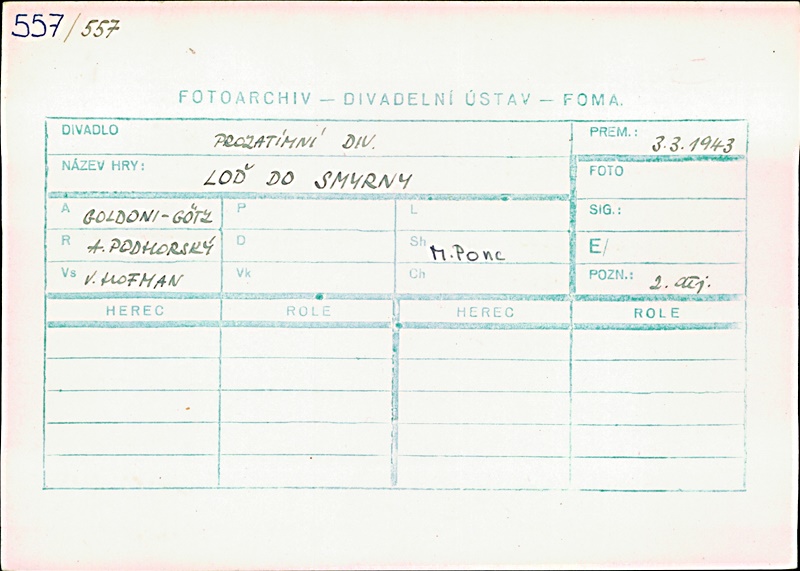 557/557
FOTOARCHIV — DIVADELNÍ ÚSTAV — FOMA.
DIVADLO PROZATÍMNÍ DIV. PREM.: 3.3.1943
NÁZEV HRY: LOĎ DO SMYRNY FOTO
A GOLDONI-GÖTZ P L SIG.:
R A. PODHORSKÝ D Sh M. Ponc E/
Vs V. HOFMAN Vk Ch POZN.: 2. děj.
HEREC ROLE HEREC ROLE